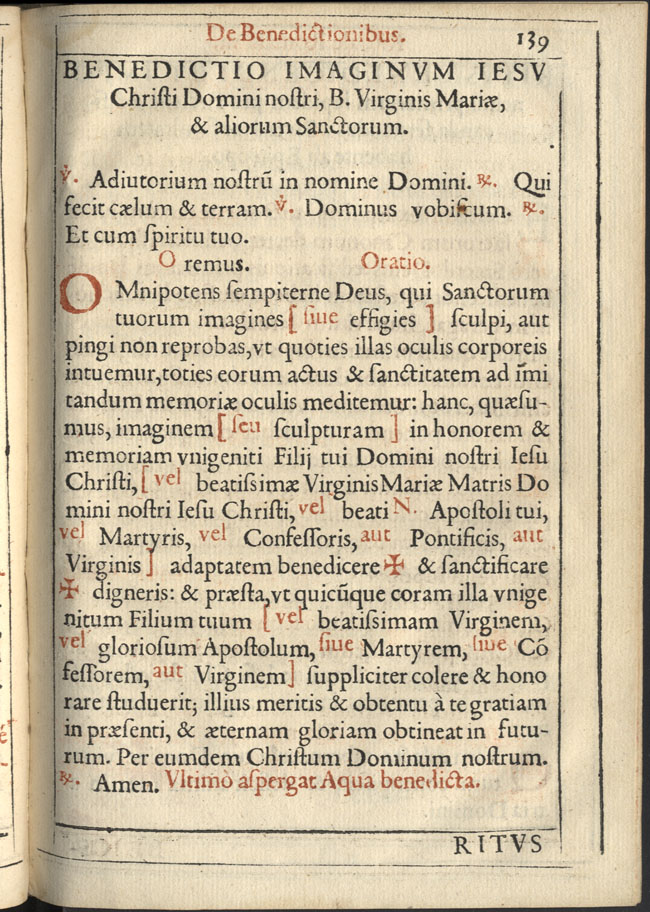 De Benedictionibus. 139
BENEDICTIO IMAGINVM IESV
Chriſti Domini noſtri, B. Virginis Mariæ,
& aliorum Sanctorum.
℣. Adiutorium noſtrū in nomine Domini. ℟. Qui
fecit cælum & terram. ℣. Dominus vobiſcum. ℟.
Et cum ſpiritu tuo.
Oremus. Oratio.
OMnipotens ſempiterne Deus, qui Sanctorum
tuorum imagines [ ſiue effigies ] ſculpi, aut
pingi non reprobas, vt quoties illas oculis corporeis
intuemur, toties eorum actus & ſanctitatem ad īmi
tandum memoriæ oculis meditemur: hanc, quæſu-
mus, imaginem [ ſeu ſculpturam ] in honorem &
memoriam vnigeniti Filij tui Domini noſtri Ieſu
Chriſti, [ vel beatiſsimæ Virginis Mariæ Matris Do
mini noſtri Ieſu Chriſti, vel beati N. Apoſtoli tui,
vel Martyris, vel Confeſſoris, aut Pontificis, aut
Virginis ] adaptatem benedicere ✠ & ſanctificare
✠ digneris: & præſta, vt quicūque coram illa vnige
nitum Filium tuum [ vel beatiſsimam Virginem,
vel glorioſum Apoſtolum, ſiue Martyrem, ſiue Cō
feſſorem, aut Virginem ] ſuppliciter colere & hono
rare ſtuduerit; illius meritis & obtentu à te gratiam
in præſenti, & æternam gloriam obtineat in futu-
rum. Per eumdem Chriſtum Dominum noſtrum.
℟. Amen. Vltimò aſpergat Aqua benedicta.
RITVS